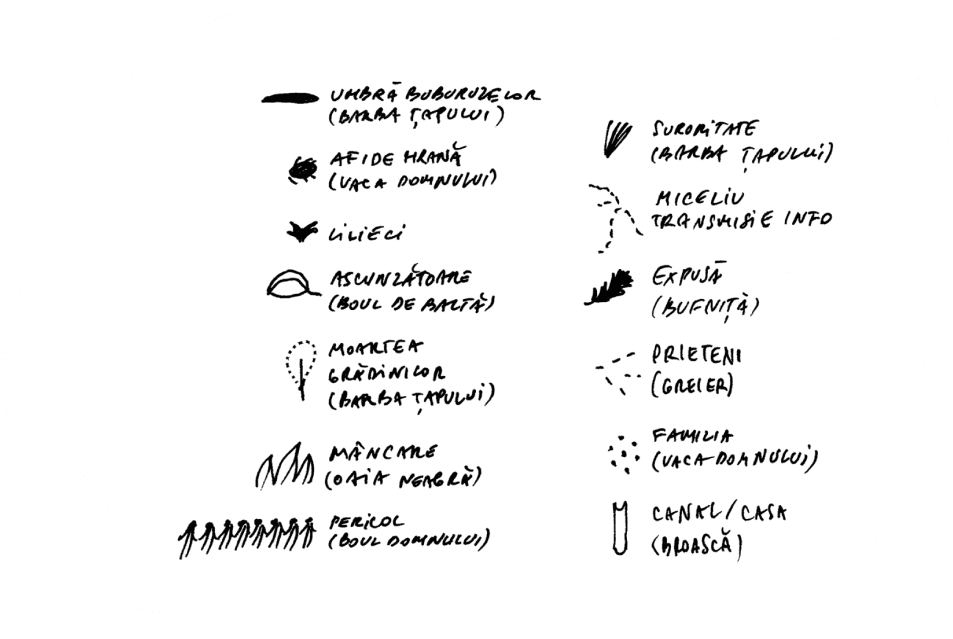 UMBRĂ BUBURUZELOR
(BARBA ȚAPULUI)
AFIDE HRANĂ
(VACA DOMNULUI)
LILIECI
ASCUNZĂTOARE
(BOUL DE BALTĂ)
MOARTEA
GRĂDINILOR
(BARBA ȚAPULUI)
MÂNCARE
(OAIA NEAGRĂ)
PERICOL
(BOUL DOMNULUI)
SURORITATE
(BARBA ȚAPULUI)
MICELIU
TRANSMISIE INFO
EXPUSĂ
(BUFNIȚĂ)
PRIETENI
(GREIER)
FAMILIA
(VACA-DOMNULUI)
CANAL/CASA
(BROASCĂ)